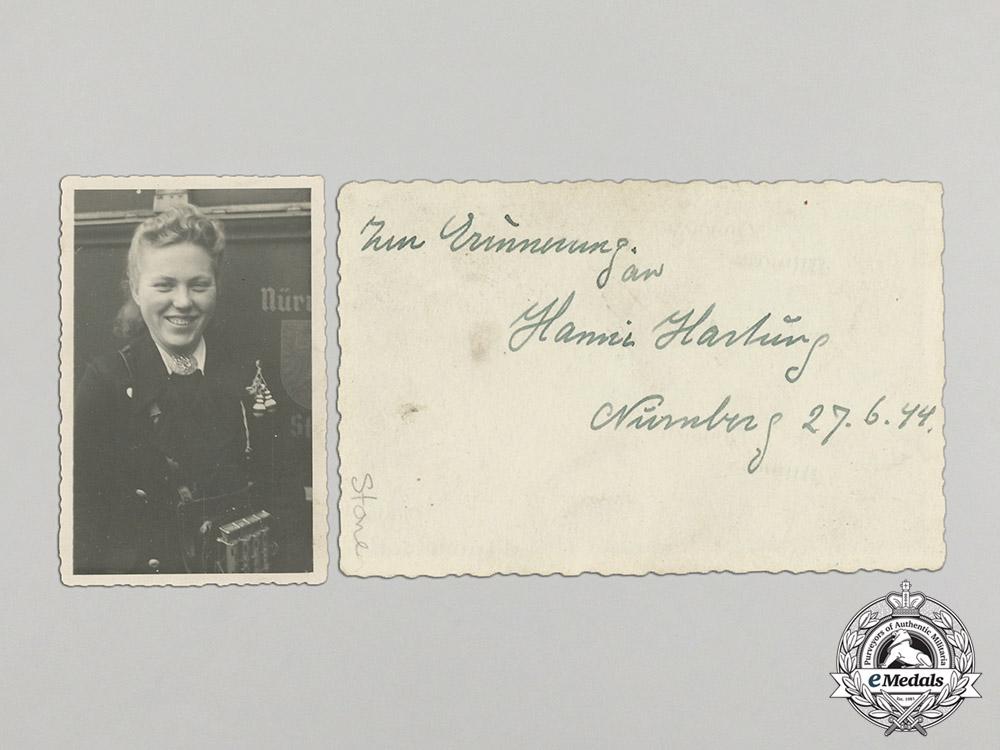 Nür
St
Zur Erinnerung.
an
Hanni Hartung
Nürnberg 27.6.44.
Stone
Purveyors of Authentic Militaria
eMedals